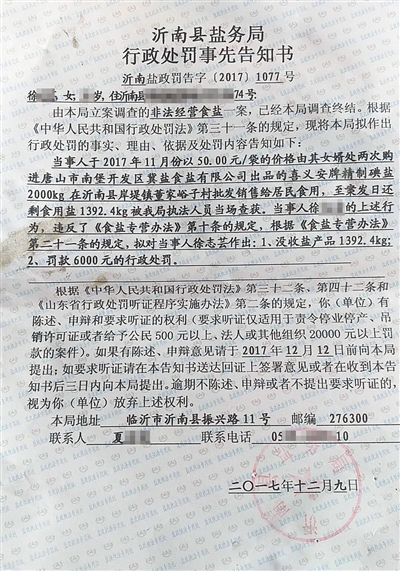 沂南县盐务局
行政处罚事先告知书
沂南盐政罚告字〔2017〕1077号
徐 女, 岁,住沂南县 74号
由本局立案调查的非法经营食盐一案,已经本局调查终结。根据
《中华人民共和国行政处罚法》第三十一条的规定,现将本局拟作出
行政处罚的事实、理由、依据及处罚内容告知如下:
当事人于2017年11月份以50.00元/袋的价格由其女婿处两次购
进唐山市南堡开发区冀盐食盐有限公司出品的喜义安牌精制碘盐
2000kg在沂南县岸堤镇董家峪子村批发销售给居民食用,至案发日还
剩食用盐1392.4kg被我局执法人员当场查获。当事人徐 的上述行
为,违反了《食盐专营办法》第十条的规定,根据《食盐专营办法》
第二十一条的规定,拟对当事人徐志芸作出:1、没收盐产品1392.4kg;
2、罚款6000元的行政处罚。
根据《中华人民共和国行政处罚法》第三十二条、第四十二条和
《山东省行政处罚听证程序实施办法》第二条的规定,你(单位)有
陈述、申辩和要求听证的权利(要求听证仅适用于责令停业停产、吊
销许可证或者给予公民500元以上、法人或其他组织20000元以上罚
款的案件)。如果有陈述、申辩意见请于2017年12月12日前向本局
提出;如要求听证请在本告知书送达回证上签署意见或者在收到本告
知书后三日内向本局提出。逾期不陈述、申辩或者不提出要求听证的,
视为你(单位)放弃上述权利。
本局地址 临沂市沂南县振兴路11号 邮编 276300
联系人 夏 联系电话 05 10
二〇一七年十二月九日